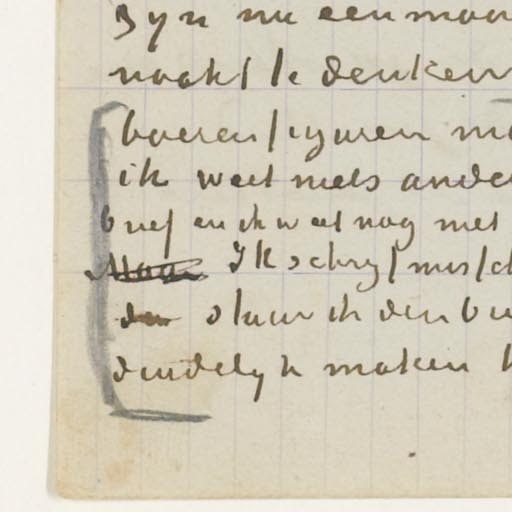 zyn nu een moo
naakt te denken
boerenfiguren m
ik weet niets ande
brief en ik weet nog niet
Maar Ik schryf mis
den stuur ik den b
duidelyk maken